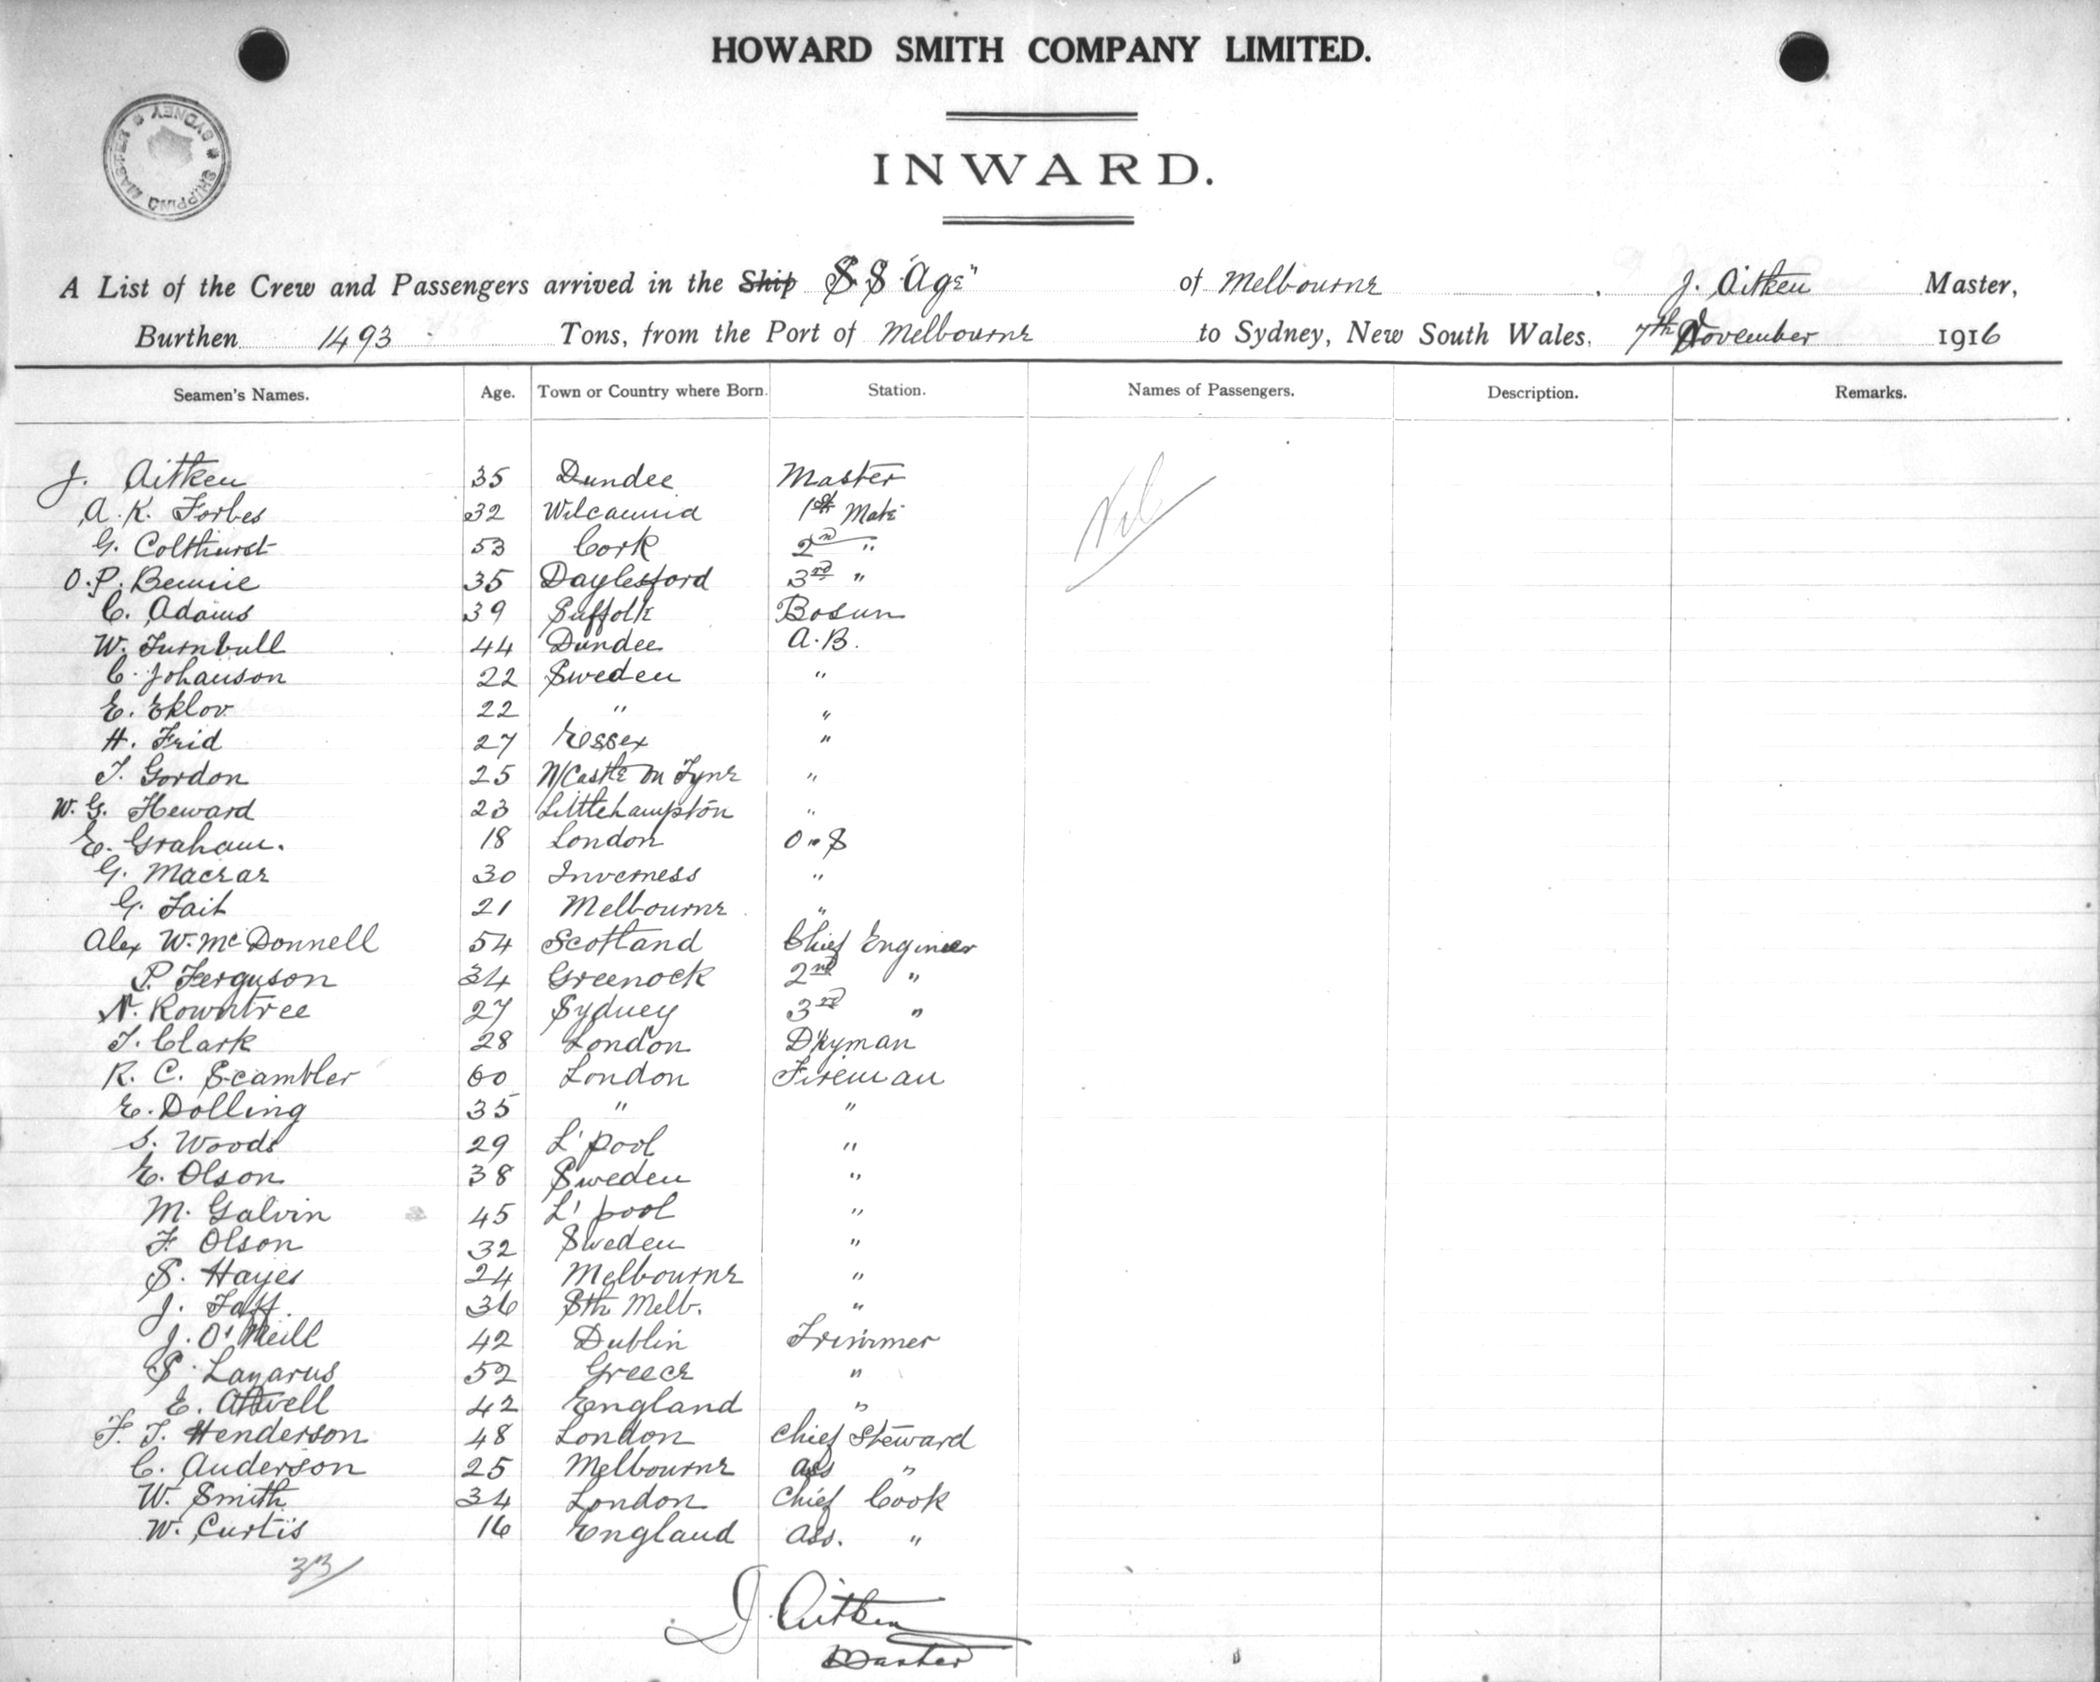 HOWARD SMITH COMPANY LIMITED.
SHIPPING MASTER SYDNEY
INWARD.
A List of the Crew and Passengers arrived in the Ship S.S "Age" of Melbourne, J. Aitken Master,
Burthen 1493 Tons, from the Port of Melbourne to Sydney, New South Wales, 7th November 1916
Seamen's Names. Age. Town or Country where Born. Station. Names of Passengers. Description. Remarks.
J. Aitken 35 Dundee Master Nil
A. K. Forbes 32 Wilcannia 1st Mate
G. Colthurst 53 Cork 2nd "
O. P. Bennie 35 Daylesford 3rd "
C. Adams 39 Suffolk Bosun
W. Turnbull 44 Dundee A.B.
C. Johanson 22 Sweden "
E. Eklov 22 " "
H. Frid 27 Essex "
T. Gordon 25 N/Castle on Tyne "
W. G. Heward 23 Littlehampton "
E. Graham. 18 London O.S
G. Macrae 30 Inverness "
G. Tait 21 Melbourne "
Alex W. McDonnell 54 Scotland Chief Engineer
P. Ferguson 34 Greenock 2nd "
N. Rowntree 27 Sydney 3rd "
T. Clark 28 London Dkyman
R. C. Scambler 60 London Fireman
E. Dolling 35 " "
S. Woods 29 L'pool "
E. Olson 38 Sweden "
M. Galvin 45 L'pool "
F. Olson 32 Sweden "
S. Hayes 24 Melbourne "
J. Taff. 36 Sth Melb. "
J. O'Neill 42 Dublin Trimmer
S. Lazarus 52 Greece "
E. Atwell 42 England "
F. T. Henderson 48 London Chief Steward
C. Anderson 25 Melbourne Ass "
W. Smith 34 London Chief Cook
W. Curtis 16 England Ass. "
33
J. Aitken
Master